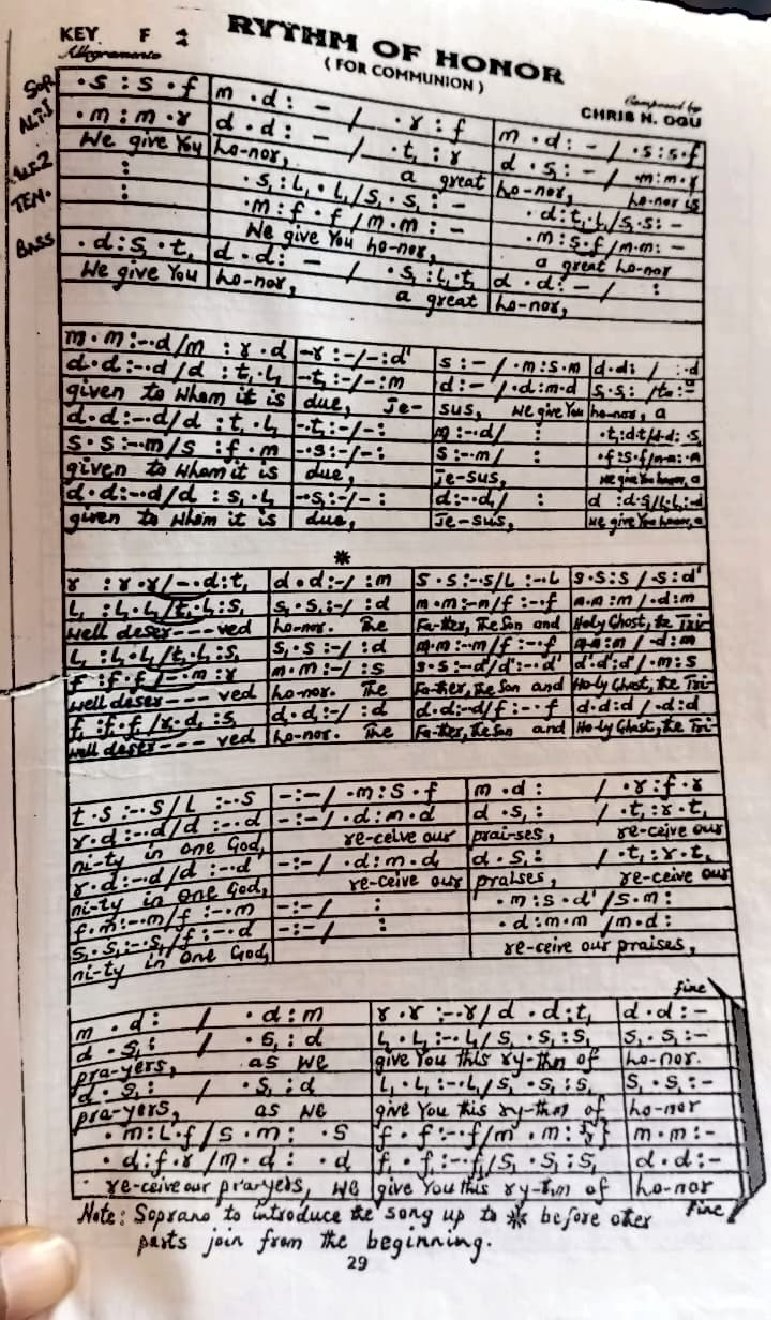 RYTHM OF HONOR
KEY F 2/2
(FOR COMMUNION)
Allegramente
Composed by
CHRIS N. OGU
SOP. ·s : s · f | m · d : – / · r : f | m · d : – / · s : s · f
ALT.1 · m : m · r | d · d : – / · t₁ : r | d · s₁ : – / · m : m · r
We give You | ho-nor, a great | ho-nor, honor is
ALT-2 : | · s₁ : l₁ · l₁ / s₁ · s₁ : – | · d : t₁ · l₁ / s₁ · s₁ : –
TEN. : | · m : f · f / m · m : – | · m : s · f / m · m : –
We give You ho-nor, | a great ho-nor
BASS · d : s₁ · t₁ | d · d : – / · s₁ : l₁ · t₁ | d · d : – / :
We give You | ho-nor, a great | ho-nor,
m · m : – · d / m : r · d | – r : – / – : d' | s : – / · m : s · m | d · d : / : · d
d · d : – · d / d : t₁ · l₁ | – t₁ : – / – : m | d : – / · d : m · d | s₁ · s₁ : /
given to whom it is | due, Je- | sus, we give You | ho-nor, a
d · d : – · d / d : t₁ · l₁ | – · t₁ : – / – : | m : – · d / :
s · s : – · m / s : f · m | – · s : – / – : | s : – · m / :
given to whom it is | due, | Je-sus, | we give You honor, a
d · d : – · d / d : s₁ · l₁ | – · s₁ : – / – : | d : – · d / :
given to whom it is | due, | Je-sus, | we give You honor, a
*
r : r · r / – · d : t₁ | d · d : – / : m | s · s : – · s / l : – · l | s · s : s / · s : d'
l₁ : l₁ · l₁ / t₁ · l₁ : s₁ | s₁ · s₁ : – / : d | m · m : – · m / f : – · f | m · m : m / · d : m
well deser --- ved | ho-nor. The | Fa-ther, The Son and | Holy Ghost, the Tri-
l₁ : l₁ · l₁ / t₁ · l₁ : s₁ | s₁ · s : – / : d | m · m : – · m / f : – · f | m · m : m / · d : m
f : f · f / – · m : r | m · m : – / : s | s · s : – · d' / d' : – · d' | d' · d' : d' / · m : s
well deser --- ved | ho-nor. The | Fa-ther, the Son and | Ho-ly Ghost, the Tri-
f₁ : f₁ · f₁ / r · d₁ : s₁ | d · d : – / : d | d · d : – d / f : – · f | d · d : d / · d : d
well deser --- ved | ho-nor. The | Fa-ther, the Son and | Ho-ly Ghost, the Tri-
t · s : – · s / l : – · s | – : – / · m : s · f | m · d : / · r : f · r
r · d : – · d / d : – · d | – : – / · d : m · d | d · s₁ : / · t₁ : r · t₁
ni-ty in one God, | re-ceive our | prai-ses, re-ceive our
r · d : – · d / d : – · d | – : – / · d : m · d | d · s₁ : / · t₁ : r · t₁
ni-ty in one God, | re-ceive our | praises, re-ceive our
f · m : – · m / f : – · m | – : – / : | · m : s · d' / s · m :
s₁ · s₁ : – · s₁ / f : – · d | – : – / : | · d : m · m / m · d :
ni-ty in one God, | re-ceive our praises,
fine
m · d : / · d : m | r · r : – · r / d · d : t₁ | d · d : –
d · s₁ : / · s₁ : d | l₁ · l₁ : – · l₁ / s₁ · s₁ : s₁ | s₁ · s₁ : –
pra-yers, as we | give You this ry-thm of | ho-nor.
d · s₁ : / · s₁ : d | l₁ · l₁ : – · l₁ / s₁ · s₁ : s₁ | s₁ · s₁ : –
pra-yers, as we | give You this ry-thm of | ho-nor
· m : l · f / s · m : · s | f · f : – · f / m · m : | m · m : –
· d : f · r / m · d : · d | f₁ · f₁ : – · f₁ / s₁ · s₁ : s₁ | d · d : –
re-ceive our prayers, we | give You this ry-thm of | ho-nor
Fine
Note: Soprano to introduce the song up to * before other
parts join from the beginning.
29